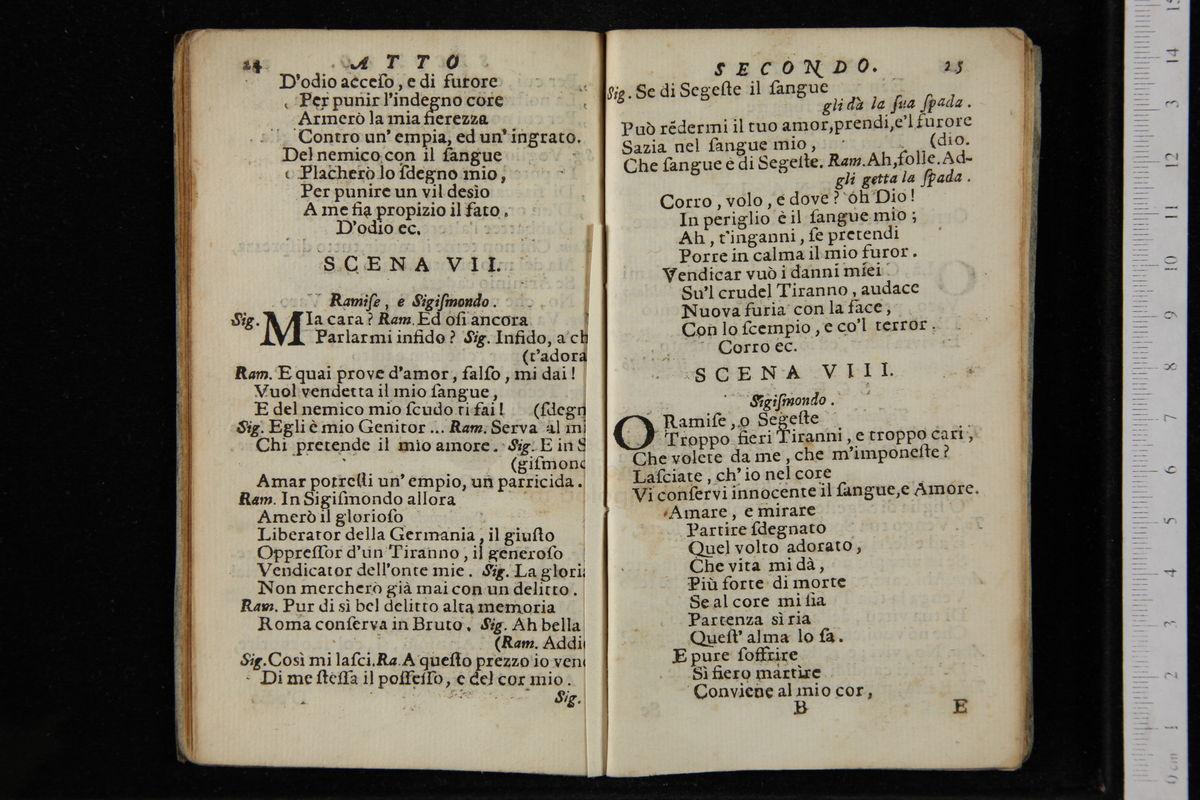 24 ATTO
D'odio acceſo, e di furore
Per punir l'indegno core
Armerò la mia fierezza
Contro un' empia, ed un' ingrato.
Del nemico con il ſangue
Placherò lo ſdegno mio,
Per punire un vil desìo
A me fia propizio il fato.
D'odio ec.
SCENA VII.
Ramiſe, e Sigiſmondo.
Sig. MIa cara? Ram. Ed oſi ancora
Parlarmi infido? Sig. Infido, a ch
(t'adora
Ram. E quai prove d'amor, falſo, mi dai!
Vuol vendetta il mio ſangue,
E del nemico mio ſcudo ti fai! (ſdegn
Sig. Egli è mio Genitor... Ram. Serva al mi
Chi pretende il mio amore. Sig. E in S
(giſmond
Amar potreſti un' empio, un parricida.
Ram. In Sigiſmondo allora
Amerò il glorioſo
Liberator della Germania, il giuſto
Oppreſſor d'un Tiranno, il generoſo
Vendicator dell'onte mie. Sig. La gloria
Non mercherò già mai con un delitto.
Ram. Pur di sì bel delitto alta memoria
Roma conſerva in Bruto. Sig. Ah bella
(Ram. Addi
Sig. Così mi laſci. Ra. A queſto prezzo io ven
Di me ſteſſa il poſſeſſo, e del cor mio.
Sig.
SECONDO. 25
Sig. Se di Segeſte il ſangue
gli dà la ſua ſpada.
Può rẽdermi il tuo amor, prendi, e'l furore
Sazia nel ſangue mio, (dio.
Che ſangue è di Segeſte. Ram. Ah, folle. Ad-
gli getta la ſpada.
Corro, volo, e dove? oh Dio!
In periglio è il ſangue mio;
Ah, t'inganni, ſe pretendi
Porre in calma il mio furor.
Vendicar vuò i danni miei
Su'l crudel Tiranno, audace
Nuova furia con la face,
Con lo ſcempio, e co'l terror.
Corro ec.
SCENA VIII.
Sigiſmondo.
O Ramiſe, o Segeſte
Troppo fieri Tiranni, e troppo cari,
Che volete da me, che m'imponeſte?
Laſciate, ch' io nel core
Vi conſervi innocente il ſangue, e Amore.
Amare, e mirare
Partire ſdegnato
Quel volto adorato,
Che vita mi dà,
Più forte di morte
Se al core mi ſia
Partenza sì ria
Queſt' alma lo ſa.
E pure ſoffrire
Sì fiero martìre
Conviene al mio cor,
B E